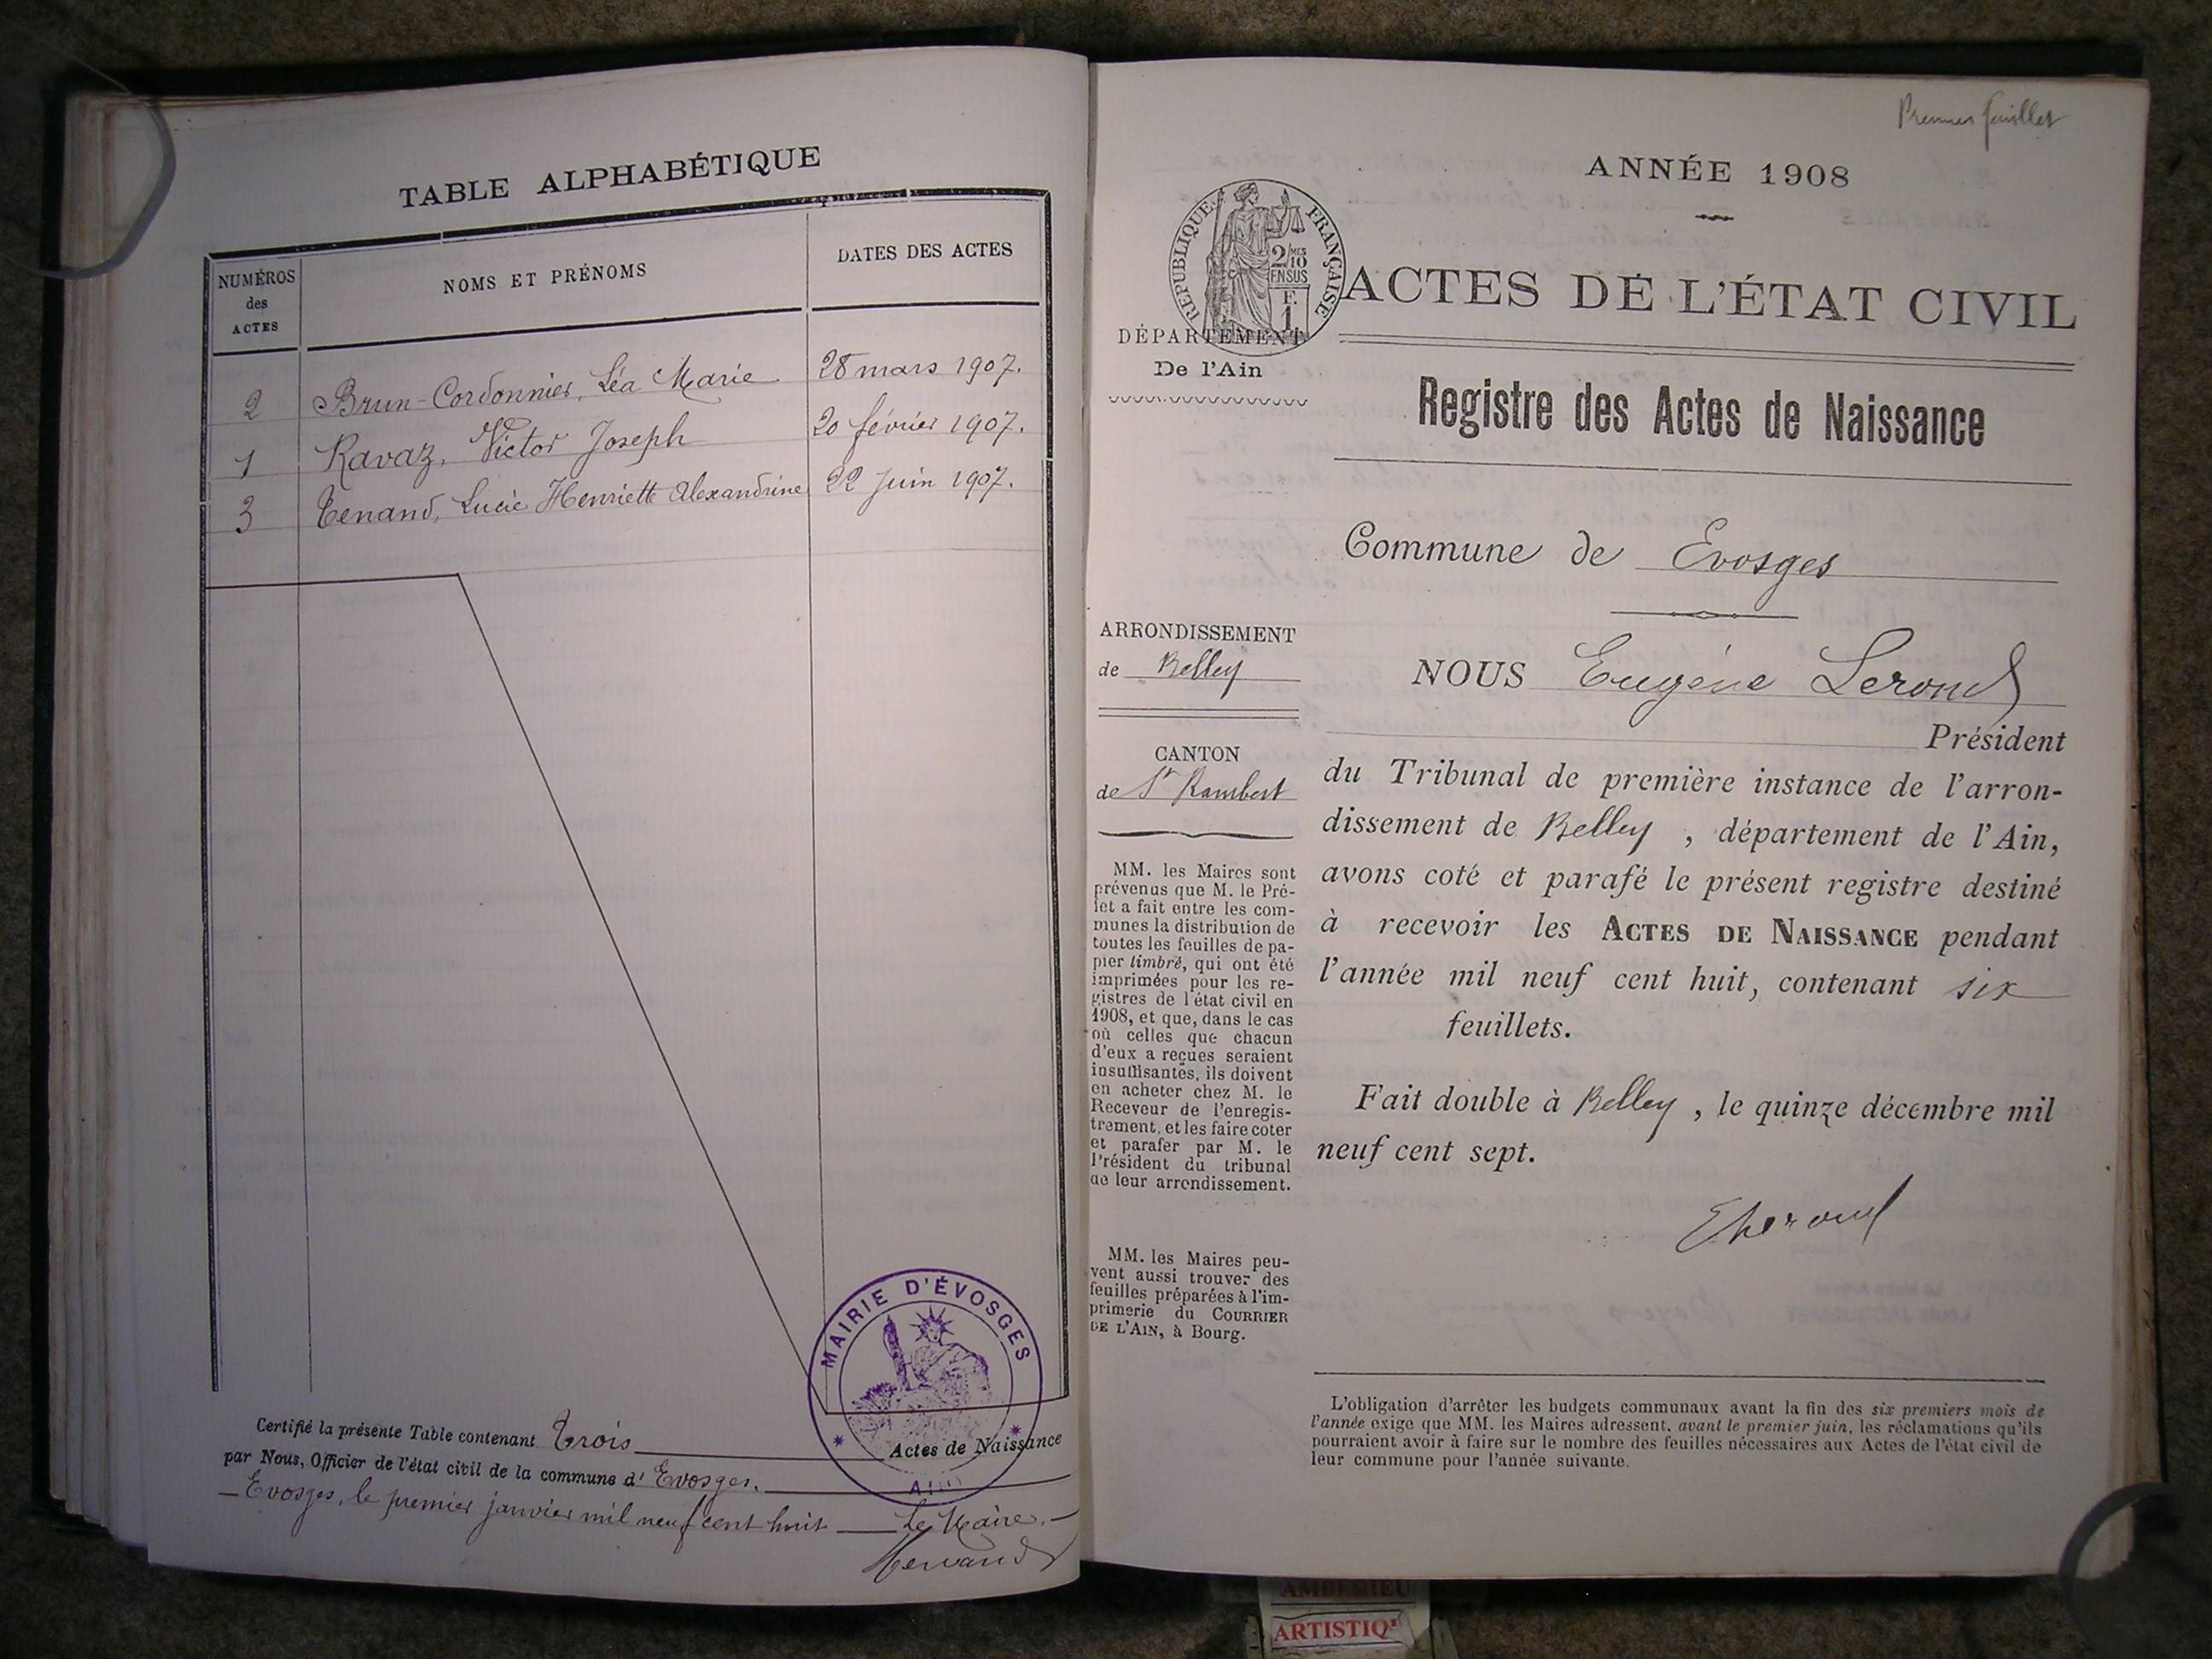 TABLE ALPHABÉTIQUE
NUMÉROS
des
ACTES
NOMS ET PRÉNOMS
DATES DES ACTES
2 Brun-Cordonnier, Léa Marie 28 mars 1907.
1 Ravaz, Victor Joseph 20 février 1907.
3 Tenand, Lucie Henriette Alexandrine 22 Juin 1907.
Certifié la présente Table contenant Trois Actes de Naissance
par Nous, Officier de l'état civil de la commune d' Evosges.
Evosges, le premier janvier mil neuf cent huit Le Maire.
MAIRIE D'ÉVOSGES
AIN
Premier feuillet
ANNÉE 1908
RÉPUBLIQUE FRANÇAISE
2/10 MES
EN SUS
F.
1
ACTES DE L'ÉTAT CIVIL
DÉPARTEMENT
De l'Ain
Registre des Actes de Naissance
Commune de Evosges
ARRONDISSEMENT
de Belley
CANTON
de St Rambert
MM. les Maires sont
prévenus que M. le Pré-
fet a fait entre les com-
munes la distribution de
toutes les feuilles de pa-
pier timbré, qui ont été
imprimées pour les re-
gistres de l'état civil en
1908, et que, dans le cas
où celles que chacun
d'eux a reçues seraient
insuffisantes, ils doivent
en acheter chez M. le
Receveur de l'enregis-
trement, et les faire coter
et parafer par M. le
Président du tribunal
de leur arrondissement.
MM. les Maires peu-
vent aussi trouver des
feuilles préparées à l'im-
primerie du COURRIER
DE L'AIN, à Bourg.
NOUS Eugène Lerond
Président
du Tribunal de première instance de l'arron-
dissement de Belley , département de l'Ain,
avons coté et parafé le présent registre destiné
à recevoir les ACTES DE NAISSANCE pendant
l'année mil neuf cent huit, contenant six
feuillets.
Fait double à Belley , le quinze décembre mil
neuf cent sept.
L'obligation d'arrêter les budgets communaux avant la fin des six premiers mois de
l'année exige que MM. les Maires adressent, avant le premier juin, les réclamations qu'ils
pourraient avoir à faire sur le nombre des feuilles nécessaires aux Actes de l'état civil de
leur commune pour l'année suivante.
AMBERIEU
ARTISTIQ